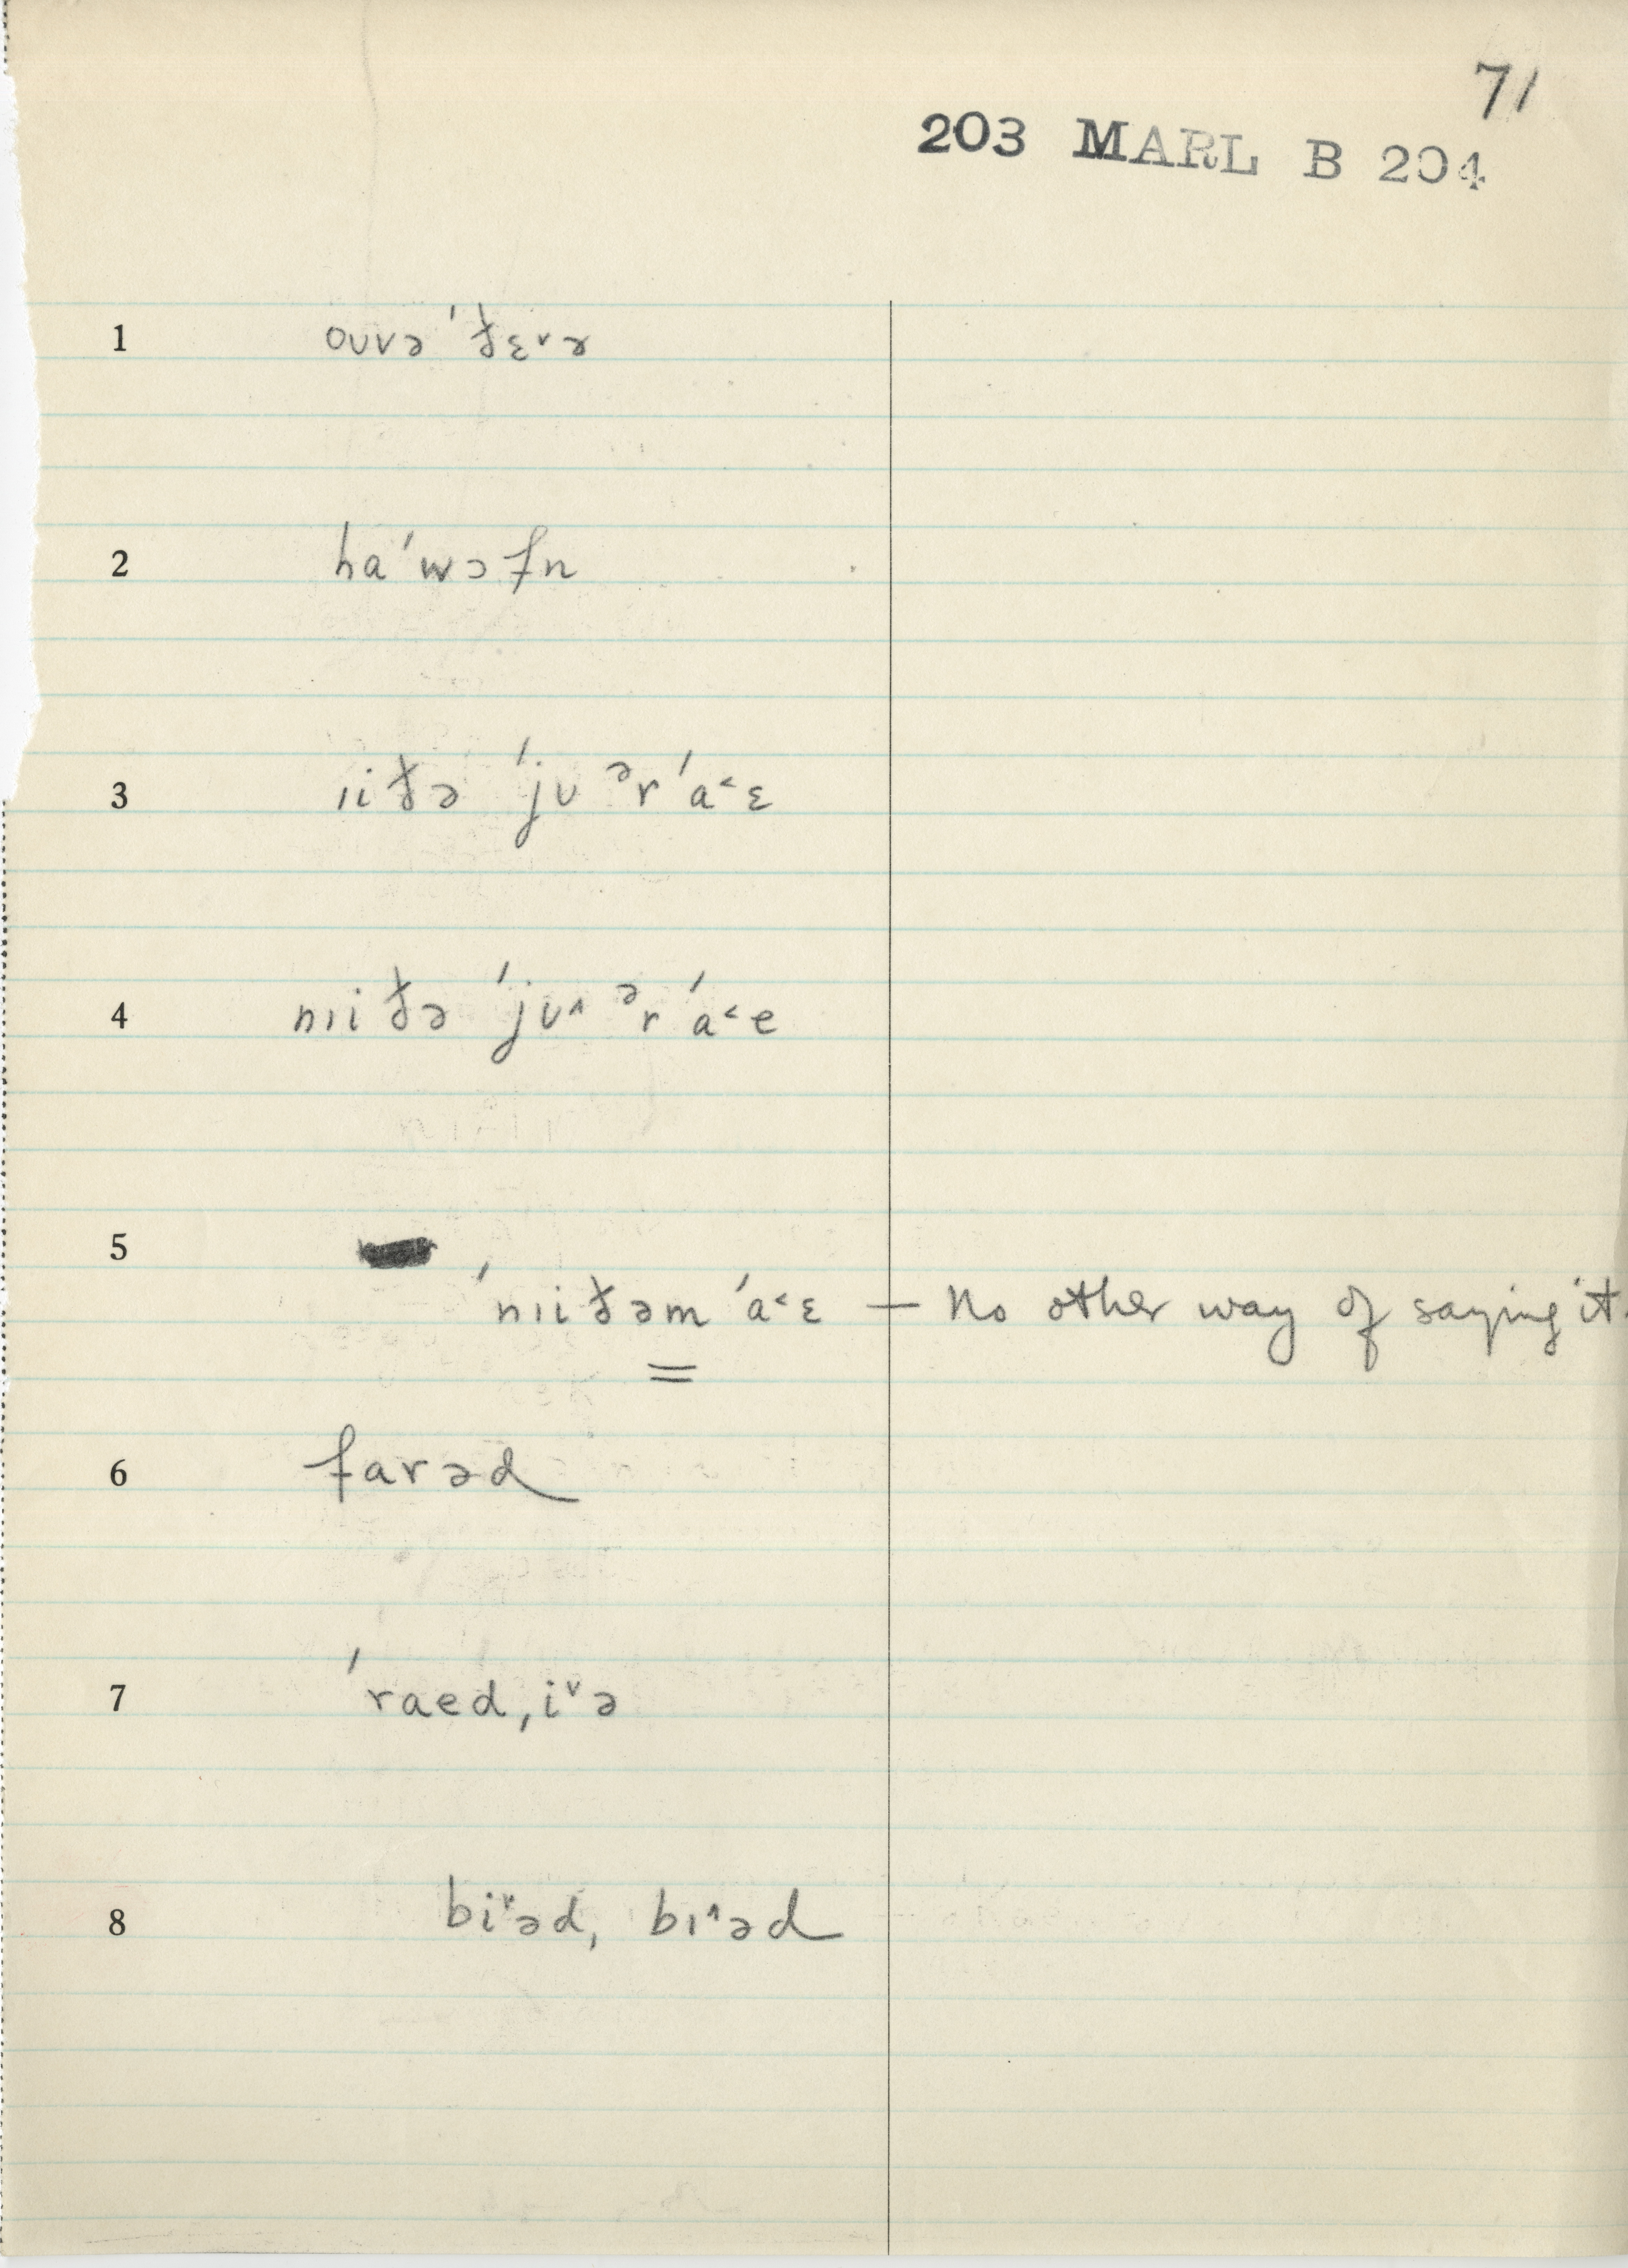 71
203 MARL B 204
1 oʊvə ˈðɛ˅ɚ
2 haˈwɔfn
3 ɪiðə ˈjʊ ᵊr ˈa˂ɛ
4 nɪiðə ˈjʊ˄ ᵊr ˈa˂e
5
ˈnɪiðəm ˈa˂ɛ — No other way of saying it.
=
6 farəd
7 ˈraed, i˅ə
8 bi˅əd, bɪ˄əd